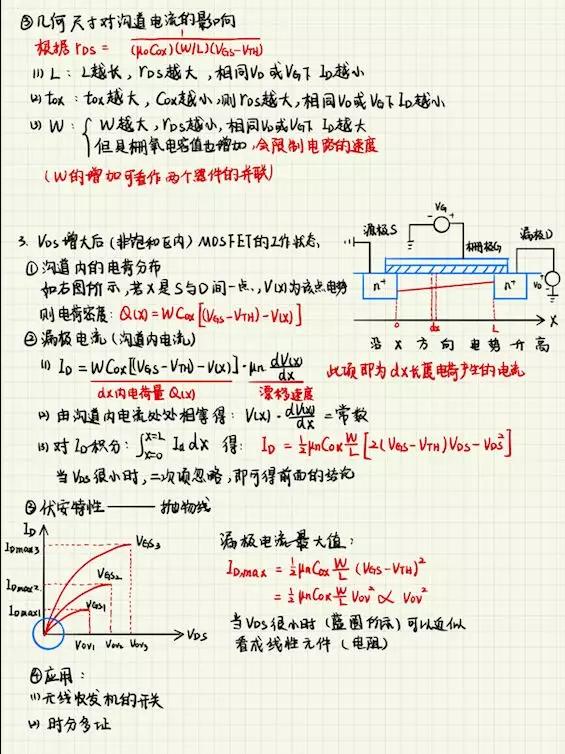 ③几何尺寸对沟道电流的影响
根据 rDS = 1/((μ0Cox)(W/L)(VGS-VTH))
(1) L：L越长，rDS越大，相同VD或VG下ID越小
(2) tox：tox越大，Cox越小，则rDS越大，相同VD或VG下ID越小
(3) W：{ W越大，rDS越小，相同VD或VG下 ID越大
但是栅氧电容值也增加，会限制电路的速度
(W的增加可看作两个器件的并联)
3. VDS增大后(非饱和区内) MOSFET的工作状态
①沟道内的电荷分布
如右图所示，若X是S与D间一点，V(x)为该点电势
则电荷密度：Q(x)=WCox[(VGS-VTH)-V(x)]
VG
源极S
栅极G
漏极D
n+
n+
VD
0
dx
L
X
沿 X 方向 电势升高
②漏极电流(沟道内电流)
(1) ID = WCox[(VGS-VTH)-V(x)]·μn dV(x)/dx
dx内电荷量Q(x)
漂移速度
此项即为dx长度电荷产生的电流
(2) 由沟道内电流处处相等得：V(x)·dV(x)/dx = 常数
(3) 对ID积分：∫x=0 x=L Id dx 得：ID = ½μnCox W/L [2(VGS-VTH)VDS-VDS²]
当VDS很小时，二次项忽略，即可得前面的结论
③伏安特性——抛物线
ID
IDmax3
IDmax2
IDmax1
VGS3
VGS2
VGS1
VOV1 VOV2 VOV3
VDS
漏极电流最大值：
ID,max = ½μnCox W/L (VGS-VTH)²
= ½μnCox W/L VOV² ∝ VOV²
当VDS很小时(蓝圈所示)可以近似
看成线性元件(电阻)
④应用：
(1)无线收发机的开关
(2) 时分多址